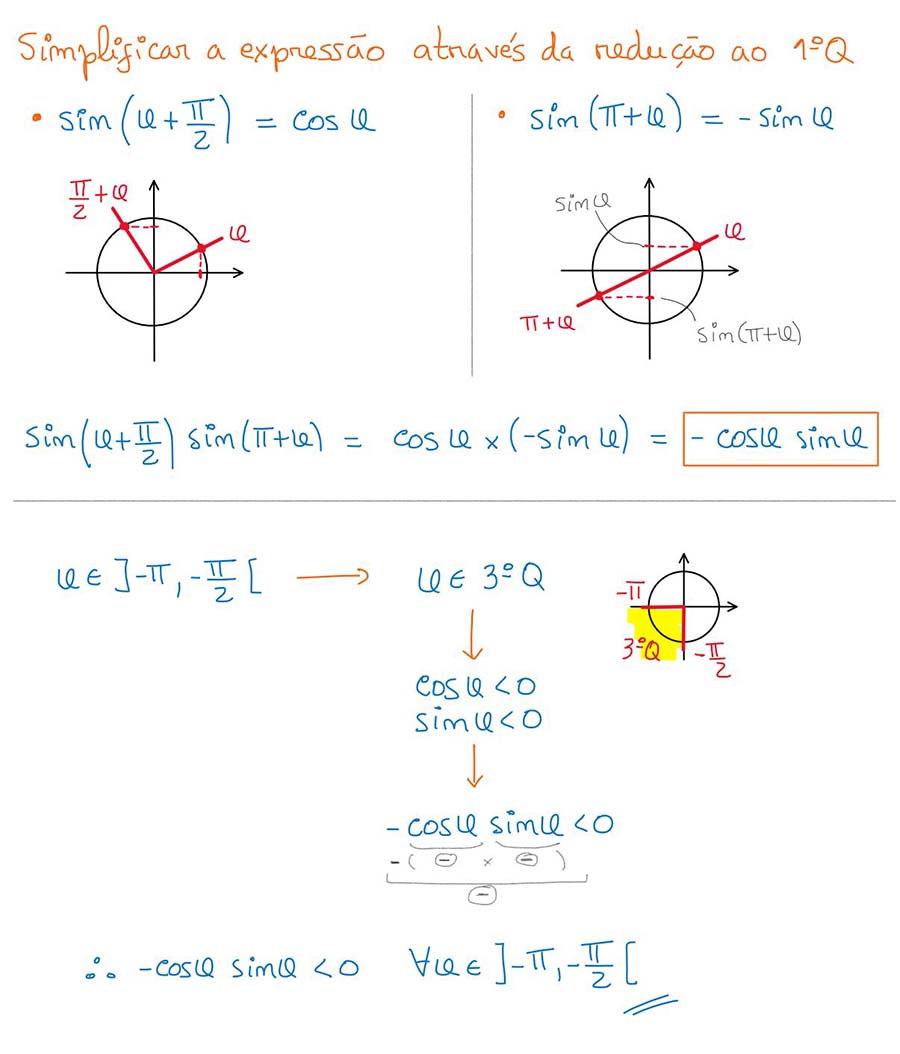 Simplificar a expressão através da redução ao 1ºQ
• sin(φ + π/2) = cos φ
π/2 + φ
φ
• sin(π + φ) = - sin φ
sin φ
φ
π + φ
sin(π + φ)
sin(φ + π/2) sin(π + φ) = cos φ × (-sin φ) = - cos φ sin φ
φ ∈ ]-π, -π/2[ → φ ∈ 3º Q
-π
3ºQ
-π/2
cos φ < 0
sin φ < 0
- cos φ sin φ < 0
- ( - × - )
-
∴ - cos φ sin φ < 0 ∀φ ∈ ]-π, -π/2[